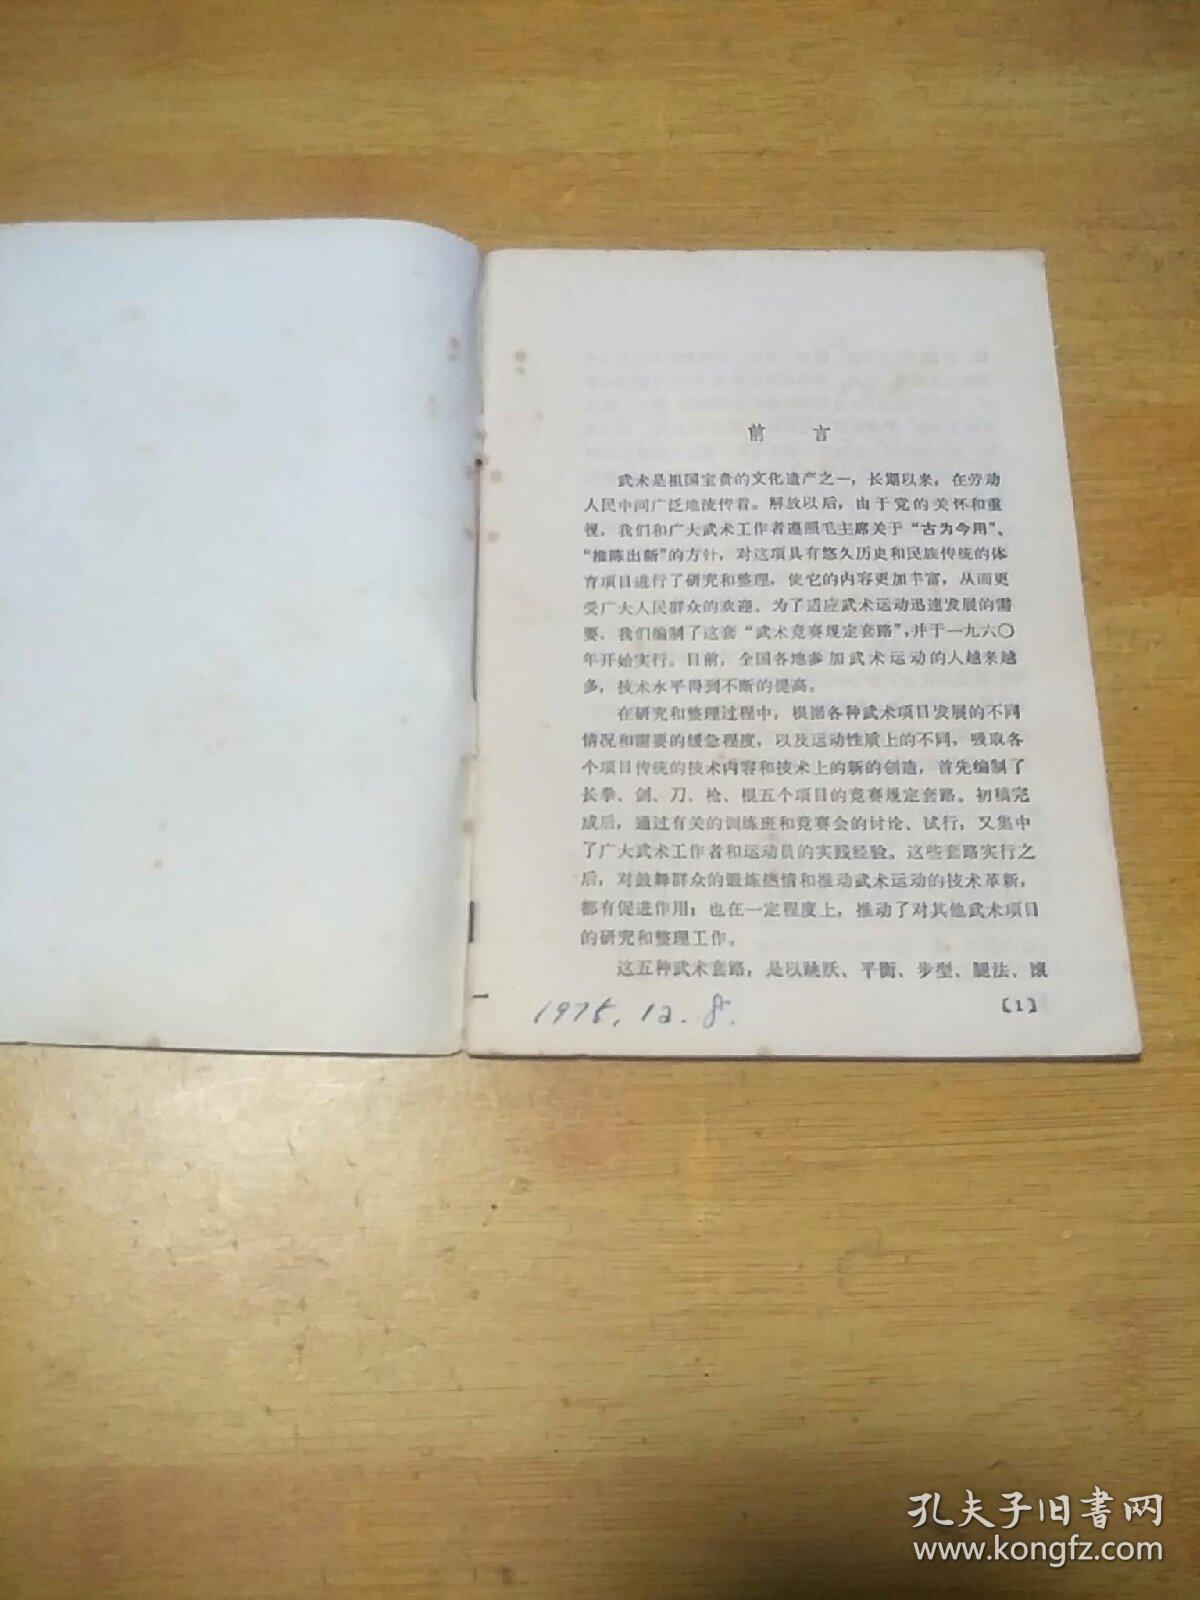 前言
武术是祖国宝贵的文化遗产之一，长期以来，在劳动
人民中间广泛地流传着。解放以后，由于党的关怀和重
视，我们和广大武术工作者遵照毛主席关于“古为今用”、
“推陈出新”的方针，对这项具有悠久历史和民族传统的体
育项目进行了研究和整理，使它的内容更加丰富，从而更
受广大人民群众的欢迎。为了适应武术运动迅速发展的需
要，我们编制了这套“武术竞赛规定套路”，并于一九六〇
年开始实行。目前，全国各地参加武术运动的人越来越
多，技术水平得到不断的提高。
在研究和整理过程中，根据各种武术项目发展的不同
情况和需要的缓急程度，以及运动性质上的不同，吸取各
个项目传统的技术内容和技术上的新的创造，首先编制了
长拳、剑、刀、枪、棍五个项目的竞赛规定套路。初稿完
成后，通过有关的训练班和竞赛会的讨论、试行，又集中
了广大武术工作者和运动员的实践经验。这些套路实行之
后，对鼓舞群众的锻炼热情和推动武术运动的技术革新，
都有促进作用；也在一定程度上，推动了对其他武术项目
的研究和整理工作。
这五种武术套路，是以跳跃、平衡、步型、腿法、滚
〔1〕
1975.12.8.
孔夫子旧书网
www.kongfz.com